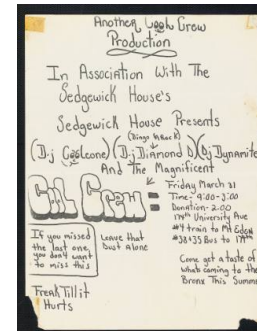 Another Cool Crew
Production
In Association With The
Sedgewick House's
Sedgewick House Presents
(Bingo is Back)
(D.j Coolcone) (D.j Diamond D) (Dj Dynamite
And The Magnificent
Cool Crew
Friday March 21
Time- 9:00-3:00
Donation- 2.00
174th University Ave
#4 train to Mt Eden
#38+35 Bus to 174th
If you missed
the last one
you don't want
to miss this
Leave that
Dust Alone
Come get a taste of
whats coming to the
Bronx This Summ
Freak Till it
Hurts